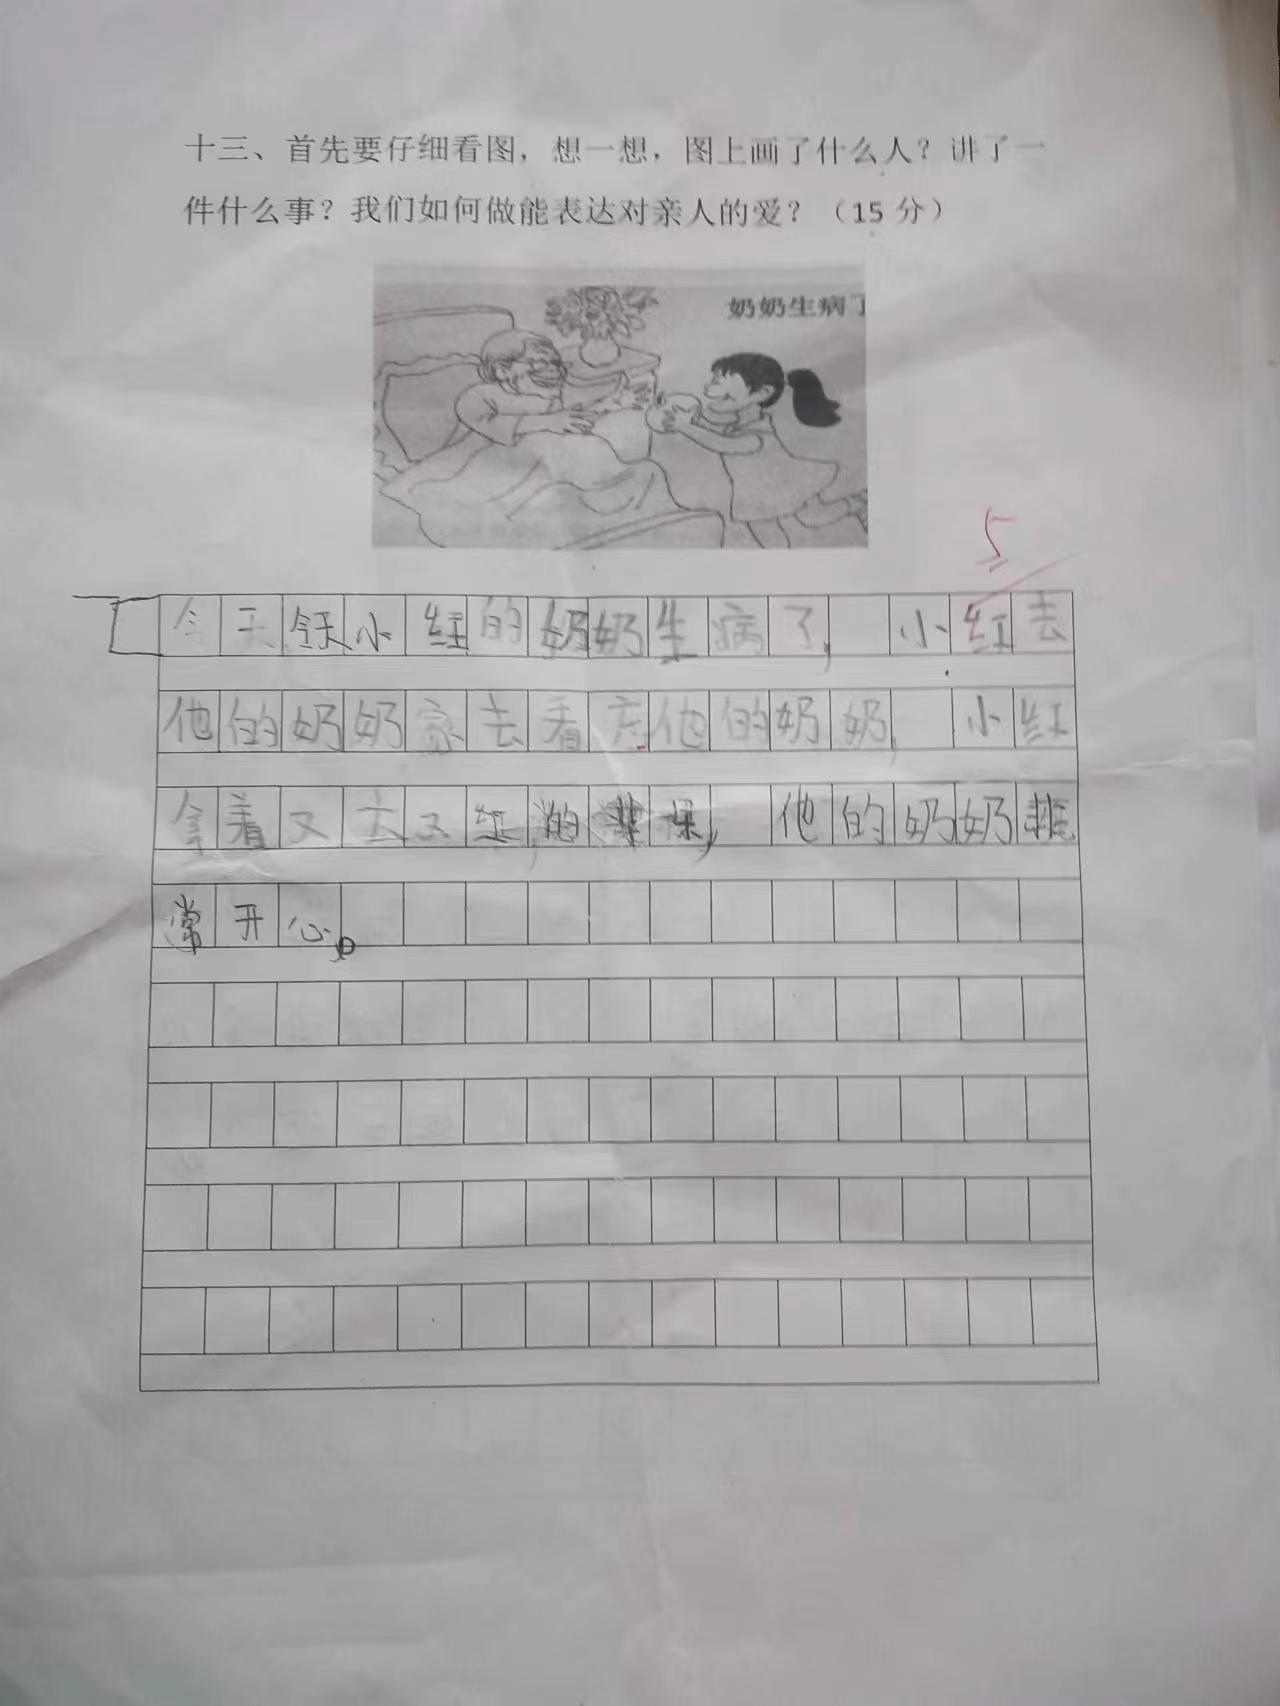 十三、首先要仔细看图，想一想，图上画了什么人？讲了一
件什么事？我们如何做能表达对亲人的爱？（15 分）
奶奶生病了
5
今天今天小红的奶奶生病了，小红去
他的奶奶家去看完他的奶奶，小红
拿着又大又红的苹果，他的奶奶非
常开心。